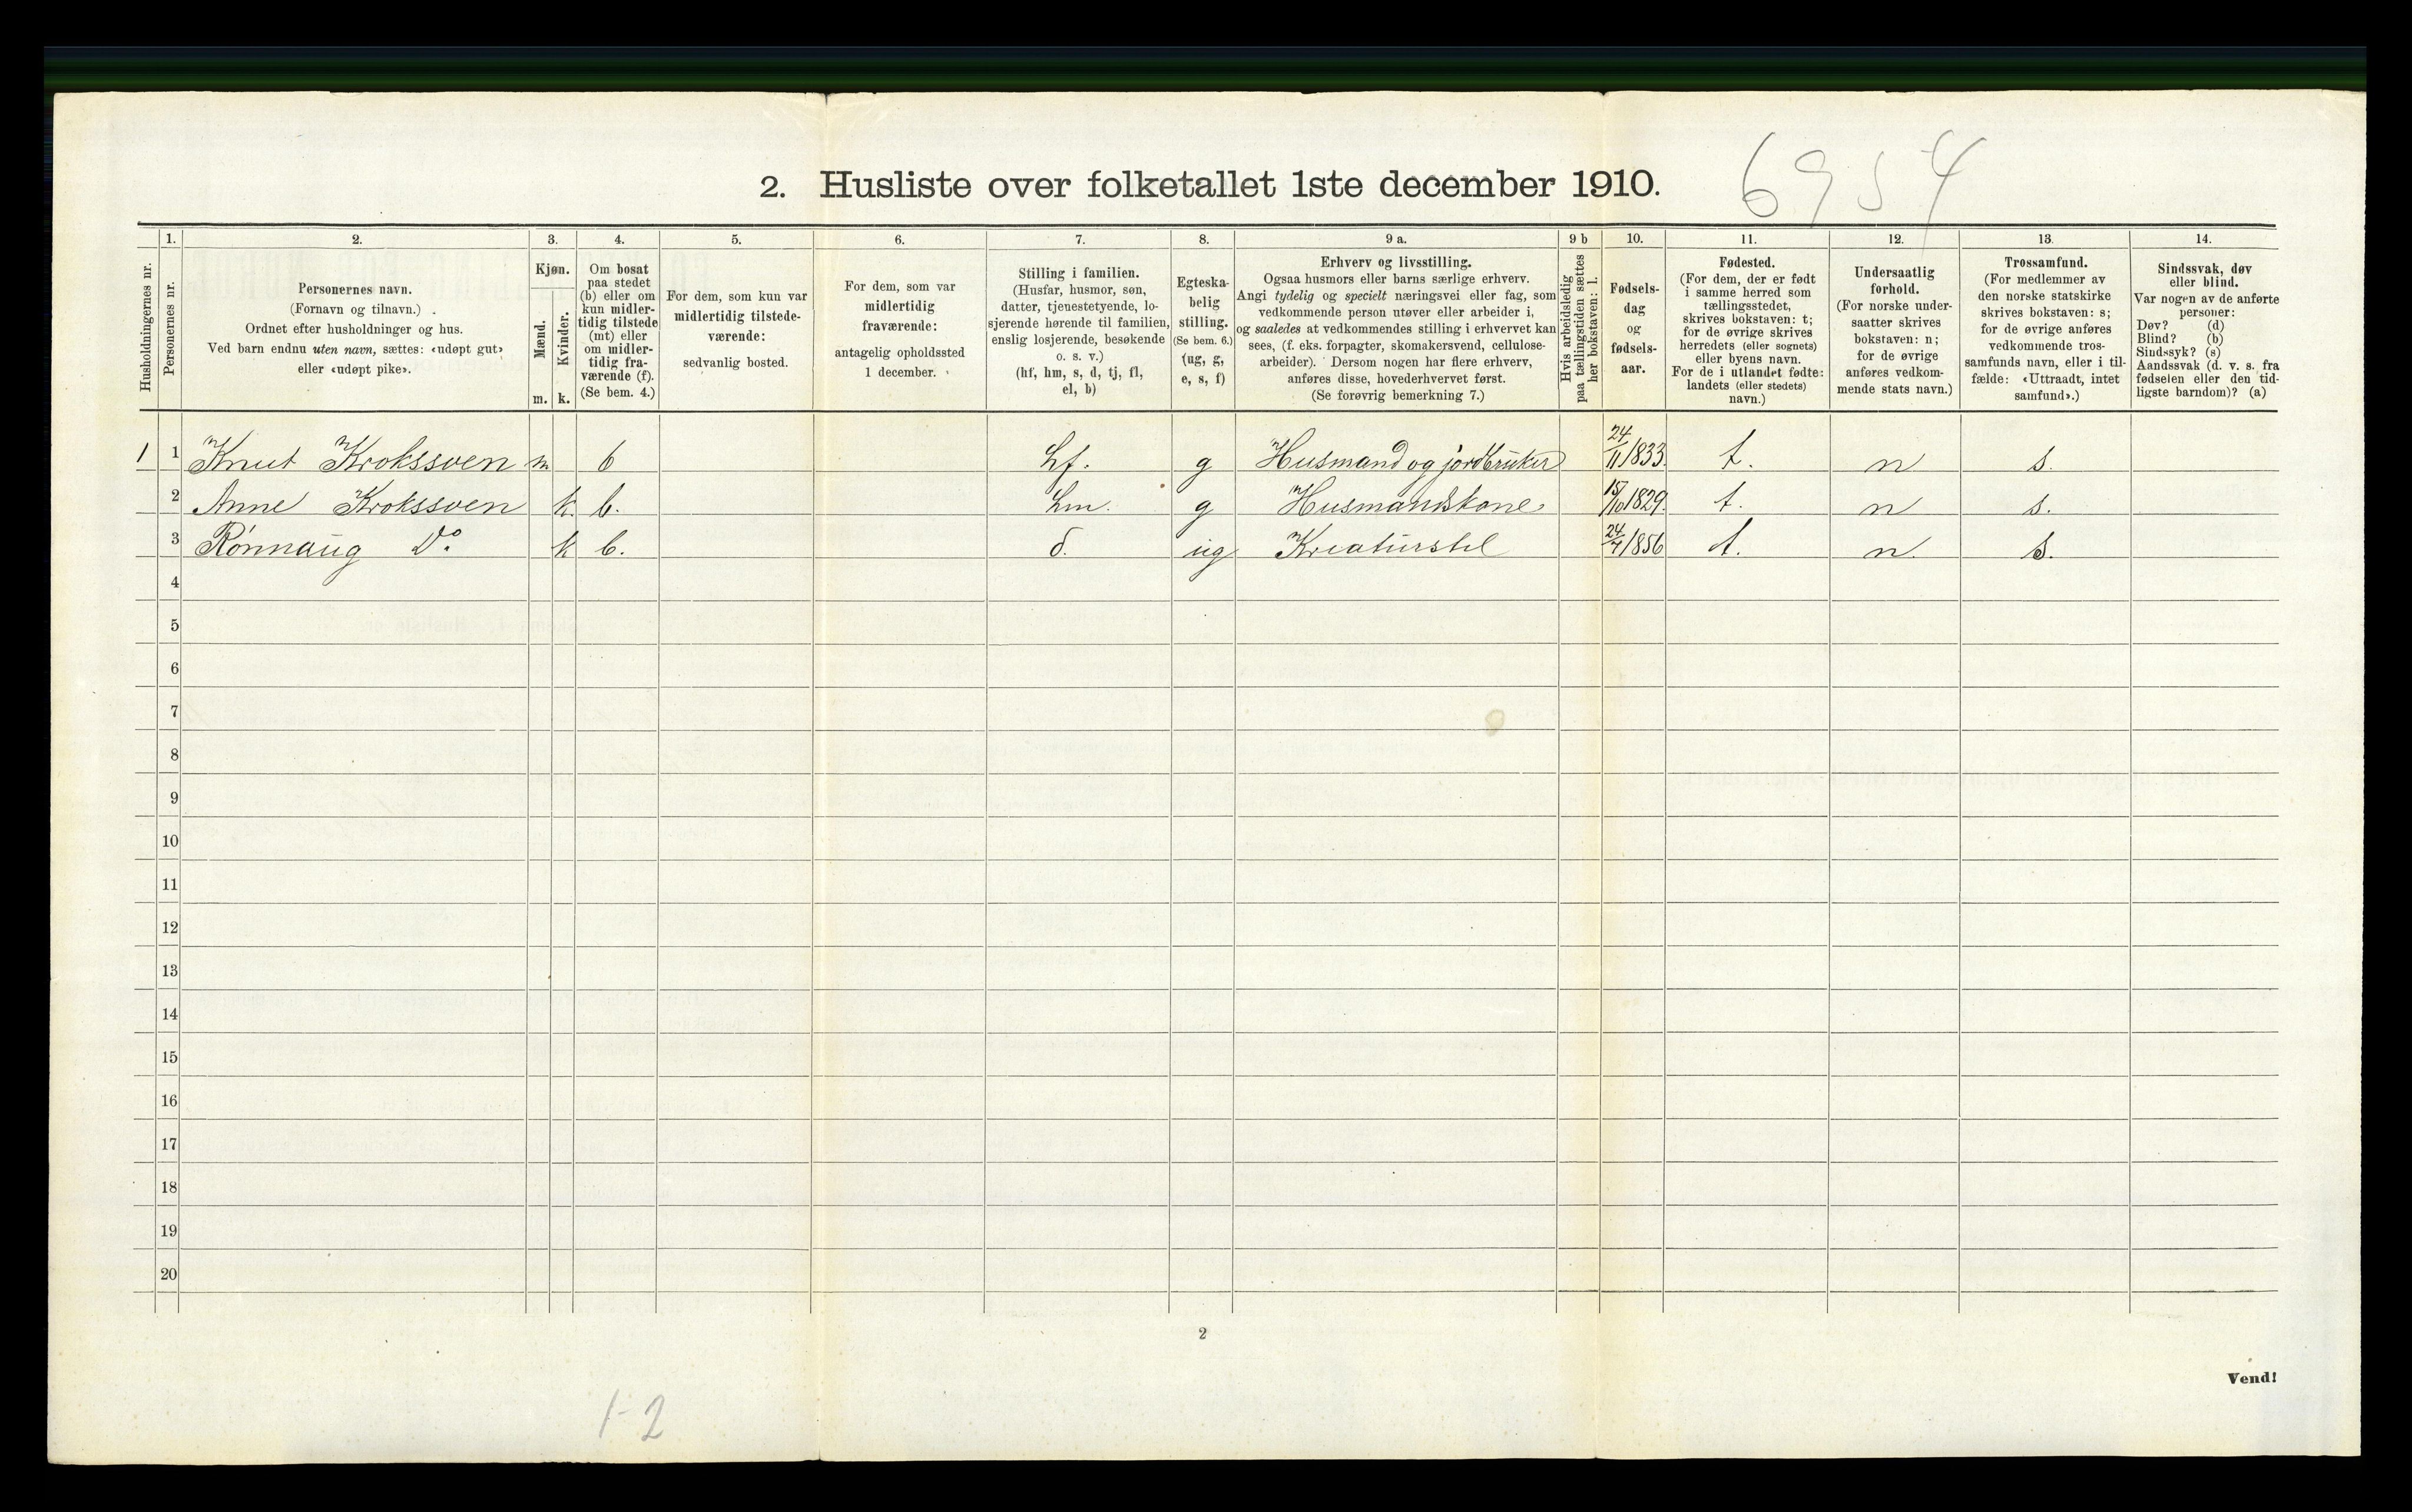 6954
2. Husliste over folketallet 1ste december 1910.
Husholdningernes nr.
1.
Personernes nr.
2.
Personernes navn.
(Fornavn og tilnavn.)
Ordnet efter husholdninger og hus.
Ved barn endnu uten navn, sættes: «udøpt gut»
eller «udøpt pike».
3.
Kjøn.
Mænd.
Kvinder.
m. k.
4.
Om bosat
paa stedet
(b) eller om
kun midler-
tidig tilstede
(mt) eller
om midler-
tidig fra-
værende (f).
(Se bem. 4.)
5.
For dem, som kun var
midlertidig tilstede-
værende:
sedvanlig bosted.
6.
For dem, som var
midlertidig
fraværende:
antagelig opholdssted
1 december.
7.
Stilling i familien.
(Husfar, husmor, søn,
datter, tjenestetyende, lo-
sjerende hørende til familien,
enslig losjerende, besøkende
o. s. v.)
(hf, hm, s, d, tj, fl,
el, b)
8.
Egteska-
belig
stilling.
(Se bem. 6.)
(ug, g,
e, s, f)
9 a.
Erhverv og livsstilling.
Ogsaa husmors eller barns særlige erhverv.
Angi tydelig og specielt næringsvei eller fag, som
vedkommende person utøver eller arbeider i,
og saaledes at vedkommendes stilling i erhvervet kan
sees, (f. eks. forpagter, skomakersvend, cellulose-
arbeider). Dersom nogen har flere erhverv,
anføres disse, hovederhvervet først.
(Se forøvrig bemerkning 7.)
9 b
Hvis arbeidsledig
paa tællingstiden sættes
her bokstaven: l.
10.
Fødsels-
dag
og
fødsels-
aar.
11.
Fødested.
(For dem, der er født
i samme herred som
tællingsstedet,
skrives bokstaven: t;
for de øvrige skrives
herredets (eller sognets)
eller byens navn.
For de i utlandet fødte:
landets (eller stedets)
navn.)
12.
Undersaatlig
forhold.
(For norske under-
saatter skrives
bokstaven: n;
for de øvrige
anføres vedkom-
mende stats navn.)
13.
Trossamfund.
(For medlemmer av
den norske statskirke
skrives bokstaven: s;
for de øvrige anføres
vedkommende tros-
samfunds navn, eller i til-
fælde: «Uttraadt, intet
samfund».)
14.
Sindssvak, døv
eller blind.
Var nogen av de anførte
personer:
Døv? (d)
Blind? (b)
Sindssyk? (s)
Aandssvak (d. v. s. fra
fødselen eller den tid-
ligste barndom)? (a)
1 1 Knut Krokssven m b hf. g Husmand og jordbruker 24/11 1833. t. n s.
2 Anne Krokssven k. b. hm. g Husmandskone 15/10 1829. t. n s.
3 Rønnaug Do. k b. d. ug Kreaturstel 24/7 1856 t. n. s.
4
5
6
7
8
9
10
11
12
13
14
15
16
17
18
19
20
2
Vend!
1-2